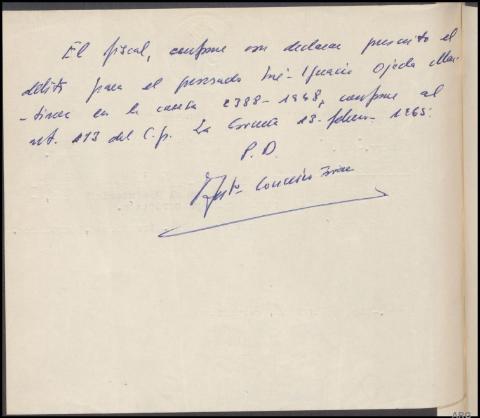 El fiscal, conforme con declarar prescrito el
delito para el procesado José-Ignacio Ojeda Mar-
-tinez en la causa 2388-1948, conforme al
art. 113 del C.p. La Coruña 13-febrero-1965.
P.D.